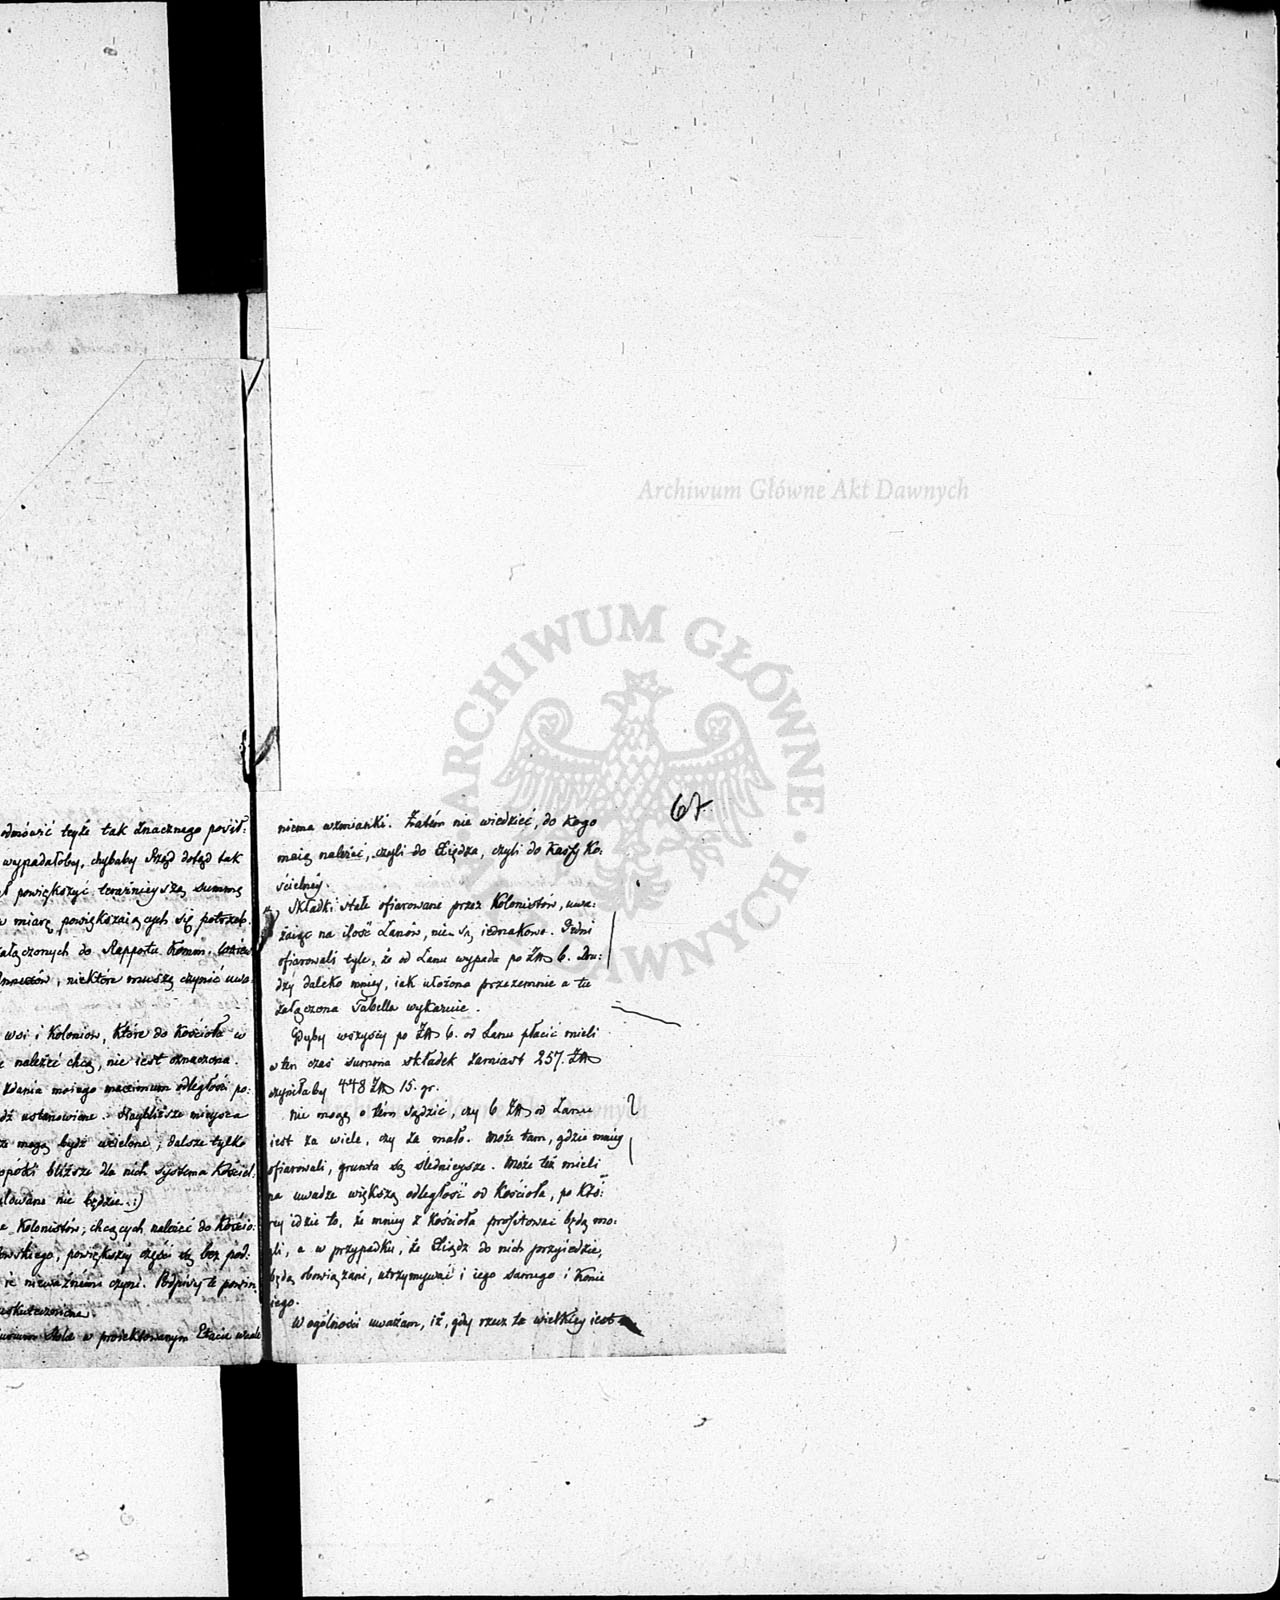 Archiwum Główne Akt Dawnych
ARCHIWUM GŁÓWNE AKT DAWNYCH
odmówić tegże tak znacznego posił:
wypadałoby, chybaby Rząd dotąd tak
powiększyć teraźnieyszą summę
w miarę powiększaiących się potrzeb.
załączonych do Rapportu Komm:
niektóre muszę czynić uwa:
wsi i Koloniow, które do Kościoła w
należeć chcą, nie iest oznaczona.
zdania moiego maximum odległości po:
ustanowione. Naybliższe mieysca
mogą bydź wcielone, dalsze tylko
bliższe dla nich systema Kościel:
nie będzie :)
Kolonistów, chcących należeć do Kościo:
powiększey części się bez pod:
nieważnémi czyni. Podpisy te powin
uskutecznione.
w proiektowanym Etacie wcale
67
niema wzmianki. Zatém nie wiedzieć, do kogo
maią należeć, czyli do Xiędza, czyli do Kassy Ko:
ścielnéy.
Składki stałe ofiarowane przez Kolonistów, uwa:
żaiąc na ilość Łanów, nie są iednakowe. Jedni
ofiarowali tyle, że od Łanu wypada po Zł 6. Dru:
dzy daleko mniéy, iak ułożona przezemnie a tu
załączona Tabella wykazuie.
Gdyby wszyscy po Zł 6. od Łanu płacić mieli
w ten czas summa składek zamiast 257. Zł
czyniłaby 448 Zł 15. gr.
Nie mogę o tém sądzić, czy 6 Zł od Łanu
iest za wiele, czy za mało. Może tam, gdzie mniéy
ofiarowali, grunta są slednieysze. Może też mieli
na uwadze większą odległość od Kościoła, po Któ:
réy idzie to, że mniéy z Kościoła profitować będą mo:
gli, a w przypadku, że Xiądz do nich przyiedzie,
będą obowiązani, utrzymywać i iego samego i Konie
iego.
W ogólności uważam, iż, gdy rzecz ta wielkiéy iest